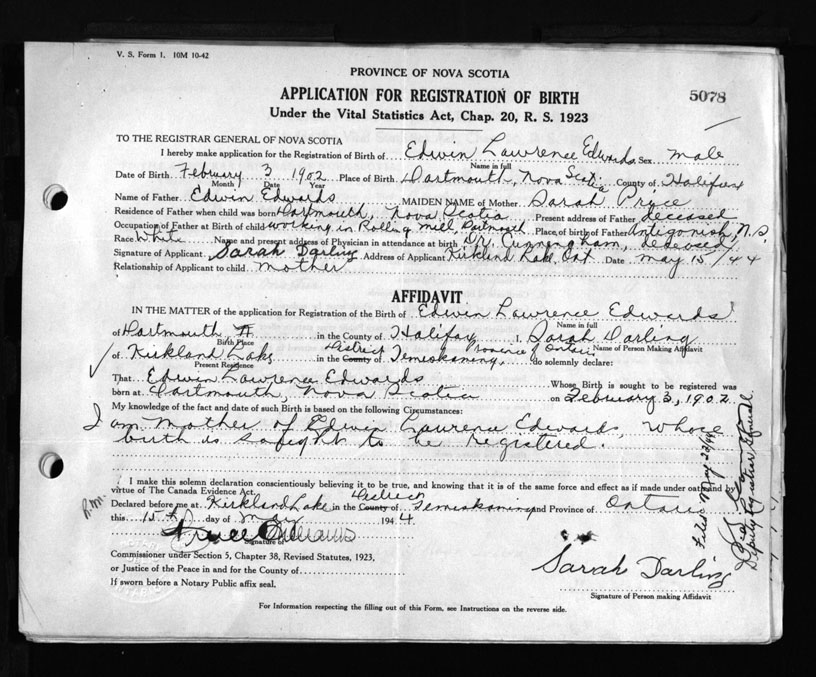 V. S. Form 1. 10M 10-42
PROVINCE OF NOVA SCOTIA
APPLICATION FOR REGISTRATION OF BIRTH 5078
Under the Vital Statistics Act, Chap. 20, R. S. 1923
TO THE REGISTRAR GENERAL OF NOVA SCOTIA
I hereby make application for the Registration of Birth of Edwin Lawrence Edwards Sex male
Name in full
Date of Birth February 3 1902 Place of Birth Dartmouth, Nova Scotia County of Halifax
Month Date Year
Name of Father Edwin Edwards MAIDEN NAME of Mother Sarah Pryce
Residence of Father when child was born Dartmouth, Nova Scotia Present address of Father deceased
Occupation of Father at Birth of child working in Rolling Mill, Place of birth of Father Antigonish, N.S.
Race White Name and present address of Physician in attendance at birth Dr. Cunningham, deseased
Signature of Applicant Sarah Darling Address of Applicant Kirkland Lake, Ont Date May 15/44
Relationship of Applicant to child mother
AFFIDAVIT
IN THE MATTER of the application for Registration of the Birth of Edwin Lawrence Edwards
Name in full
of Dartmouth in the County of Halifax I, Sarah Darling
Birth Place Name of Person Making Affidavit
of Kirkland Lake in the County District Temiskaming, Province of Ontario do solemnly declare:
Present Residence
That Edwin Lawrence Edwards Whose Birth is sought to be registered was
born at Dartmouth, Nova Scotia on February 3, 1902
My knowledge of the fact and date of such Birth is based on the following Circumstances:
I am Mother of Edwin Lawrence Edwards, whose
birth is sought to be registered.
I make this solemn declaration conscientiously believing it to be true, and knowing that it is of the same force and effect as if made under oath and by
virtue of The Canada Evidence Act.
Declared before me at Kirkland Lake in the County District Temiskaming and Province of Ontario
this 15th day of May 1944
Signature of
Commissioner under Section 5, Chapter 38, Revised Statutes, 1923,
or Justice of the Peace in and for the County of
If sworn before a Notary Public affix seal.
Sarah Darling
Signature of Person making Affidavit
For Information respecting the filling out of this Form, see Instructions on the reverse side.
Filed May 23/44
Deputy Registrar General.